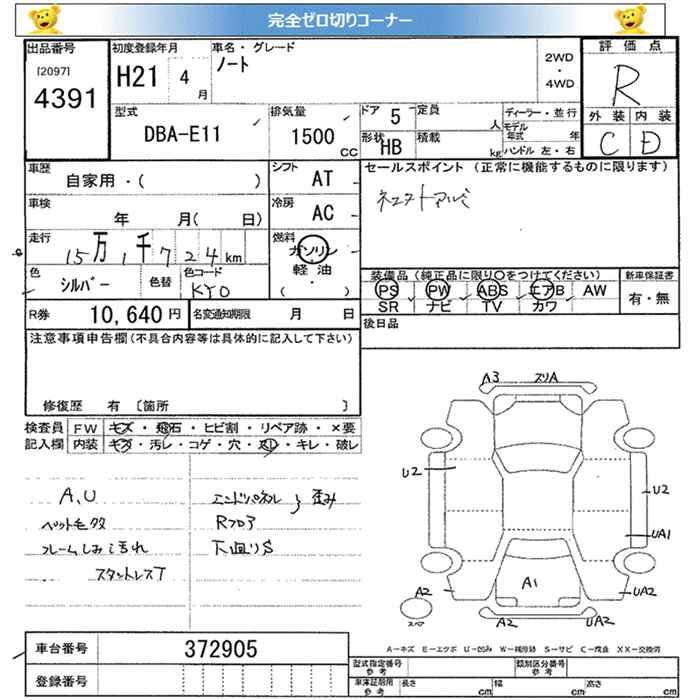 完全ゼロ切りコーナー
出品番号
[2097]
4391
初度登録年月
H21 4月
車名・グレード
ノート
2WD
・
4WD
評価点
R
外装 内装
C D
型式
DBA-E11
排気量
1500 CC
ドア 5
形状 HB
定員 人
積載 kg
ディーラー・並行
モデル年式 年
ハンドル 左・右
車歴
自家用・( )
シフト AT
セールスポイント (正常に機能するものに限ります)
車検
年 月( 日)
冷房 AC
走行
15万1千724km
燃料
ガソリン
軽油
( ・ )
色
シルバー
色替
色コード
KY0
装備品(純正品に限り○をつけてください)
新車保証書
PS PW ABS エアB AW
SR ナビ TV カワ
有・無
R券 10,640円
名変通知期限 月 日
後日品
注意事項申告欄(不具合内容等は具体的に記入して下さい)
修復歴 有 〔箇所 〕
検査員
記入欄
FW キズ・飛石・ヒビ割・リペア跡・×要
内装 キズ・汚レ・コゲ・穴・スレ・キレ・破レ
A,U
ペット毛多
フレームしみ汚れ
スタットレスT
エンドパネル 歪み
Rフロア
下廻りS
A3 スリA
U2
U2
UA1
A2
A1
UA2
スペ
A2
UA2
A-キズ E-エクボ U-凹み W-補修跡 S-サビ C-腐食 XX-交換済
車台番号 372905
登録番号
型式指定番号
参考
類別区分番号
参考
車庫証明用
参考
長さ cm
幅 cm
高さ cm